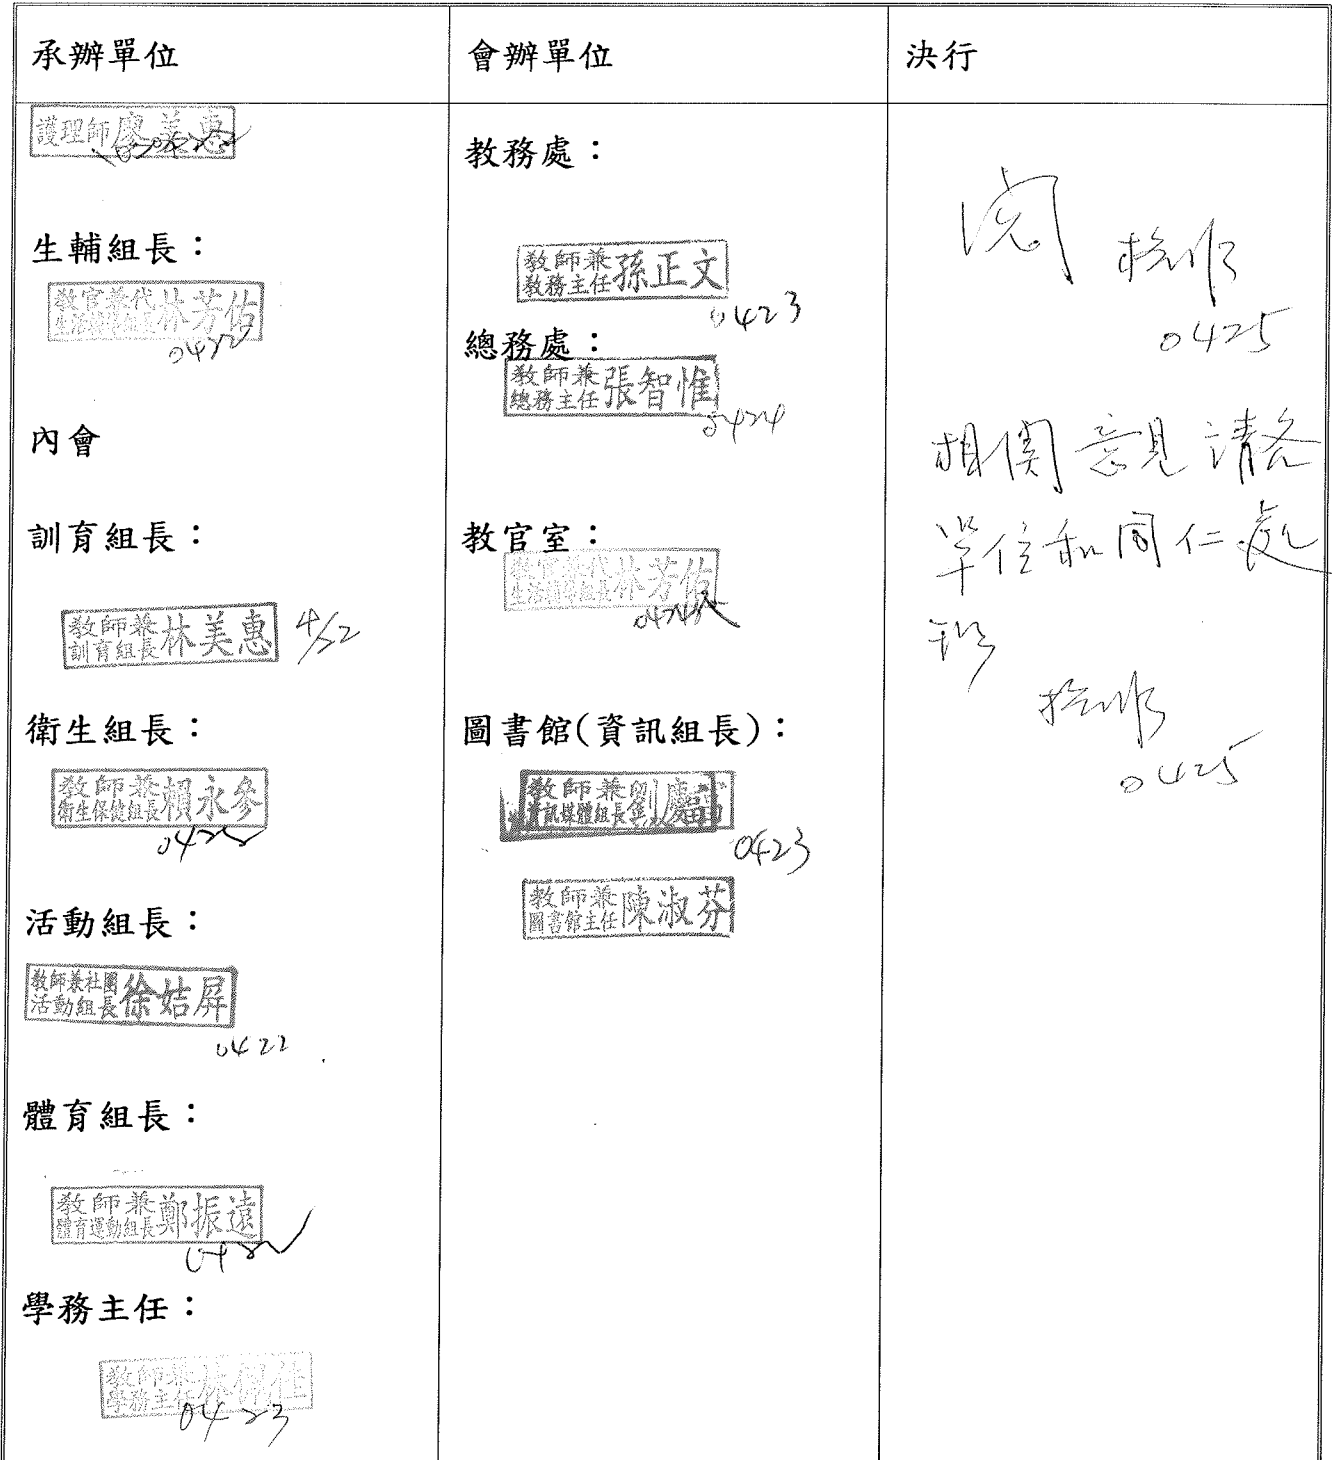 承辦單位
護理師廖美惠
生輔組長：
教官兼代
生活輔導組長林芳佑
0422
內會
訓育組長：
教師兼
訓育組長林美惠 4/22
衛生組長：
教師兼
衛生保健組長賴永參
0422
活動組長：
教師兼社團
活動組長徐姞屏
0422
體育組長：
教師兼
體育運動組長鄭振遠
0422
學務主任：
教師兼
學務主任林佩佳
0423
會辦單位
教務處：
教師兼
教務主任孫正文
0423
總務處：
教師兼
總務主任張智惟
0424
教官室：
教官兼代
生活輔導組長林芳佑
0424
圖書館(資訊組長)：
教師兼
資訊媒體組長劉
0423
教師兼
圖書館主任陳淑芬
決行
閱
0425
相關意見請各
單位和同仁處
理
0425